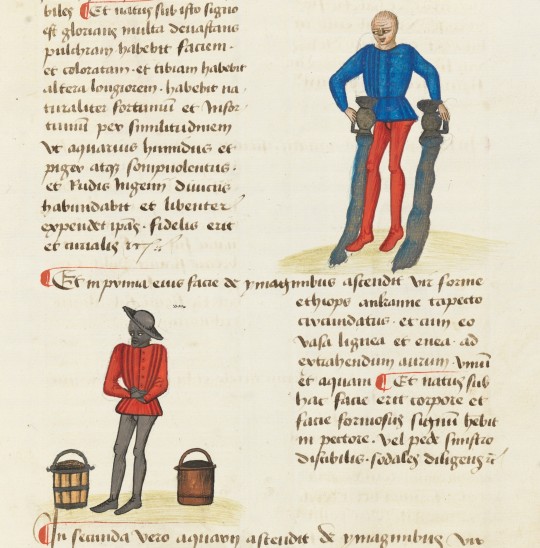 biles ¶ Et natus sub isto signo
est glorians multa devastans
pulchram habebit faciem .
et coloratam . et tibiam habebit
altera longiorem . habebit na
turaliter fortunium et Infor
tunium per similitudinem
Ut aquarius humidus et
piger atqz sompnolentus .
et Rudis Ingenii divicijs
habundabit et libenter
expendet ipas . fidelis erit
et curialis
¶ Et in prima eius facie de ymaginibus ascendit vir forme
ethiops tapecto
circumdatus . et cum eo
vasa lignea et enea . ad
extrahendum aurum . vinum
et aquam ¶ Et natus sub
hac facie erit corpore et
facie formosus signum hebit
in pectore . vel pede sinistro
sodales diligens
¶ In secunda vero aquarij ascendit de ymaginibus vir